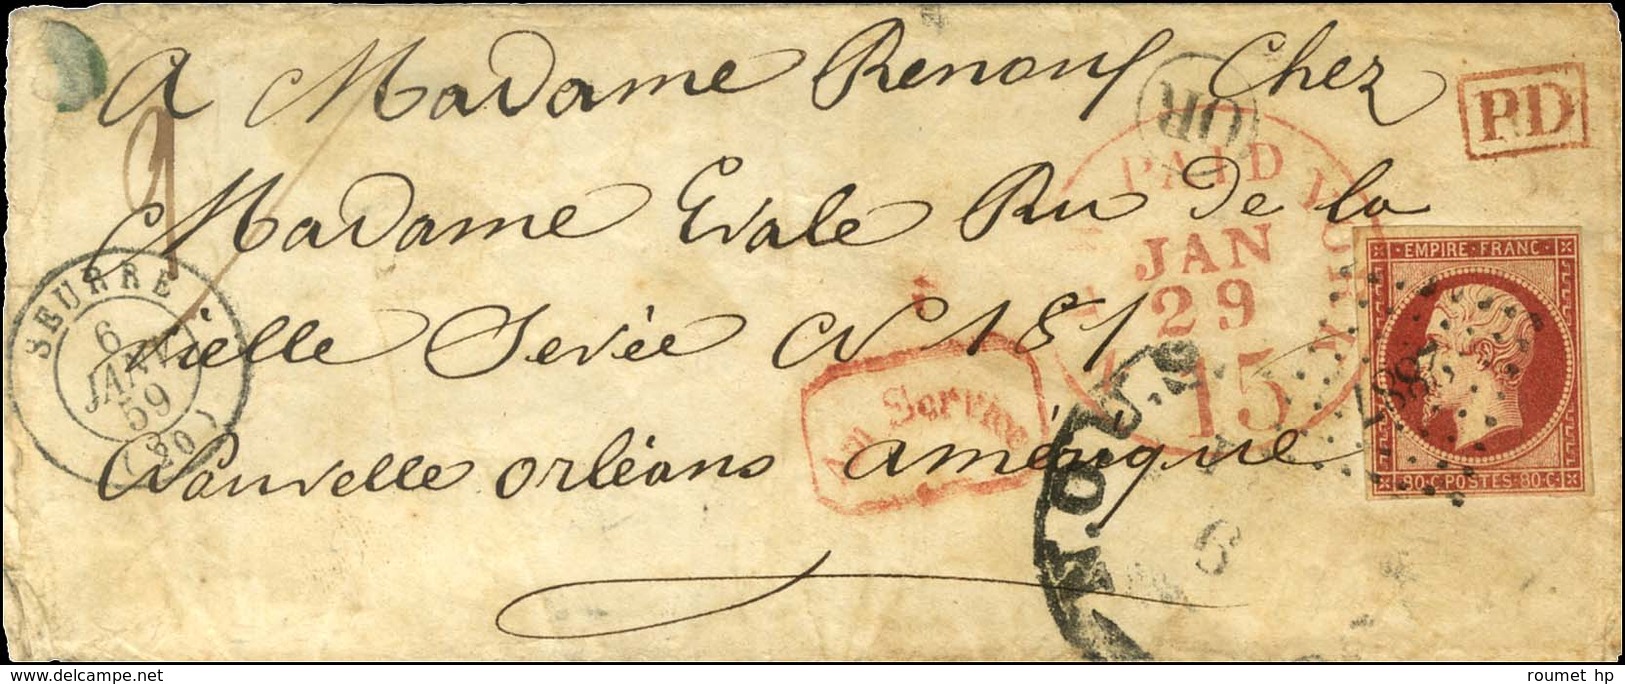 A Madame Renouf Chez
OR
PD
Madame Evale Ru de la
PAID
YORK
JAN
29
15
SEURRE
6
JANV.
59
(20)
vielle Levée N 181
Au Service
Nouvelle Orléans amérique
EMPIRE·FRANC·
80·C·POSTES·80·C·
N.OU.
6
roumet hp